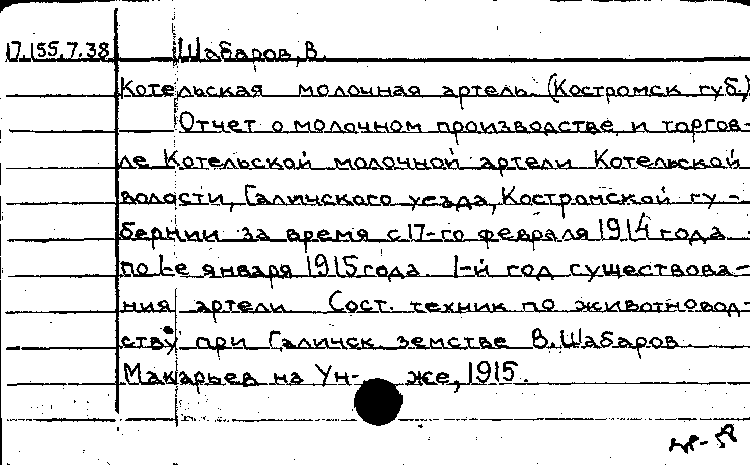 17.155.7.38 Шабаров, В.
Котельская молочная артель. (Костромск губ.)
Отчет о молочном производстве и торгов-
ле Котельской молочной артели Котельской
волости, Галичского уезда, Костромской гу-
бернии за время с 17-го февраля 1914 года
по 1-е января 1915 года. 1-й год существова-
ния артели Сост. техник по животновод-
ству при Галичск. земстве В. Шабаров.
Макарьев на Ун- же, 1915.